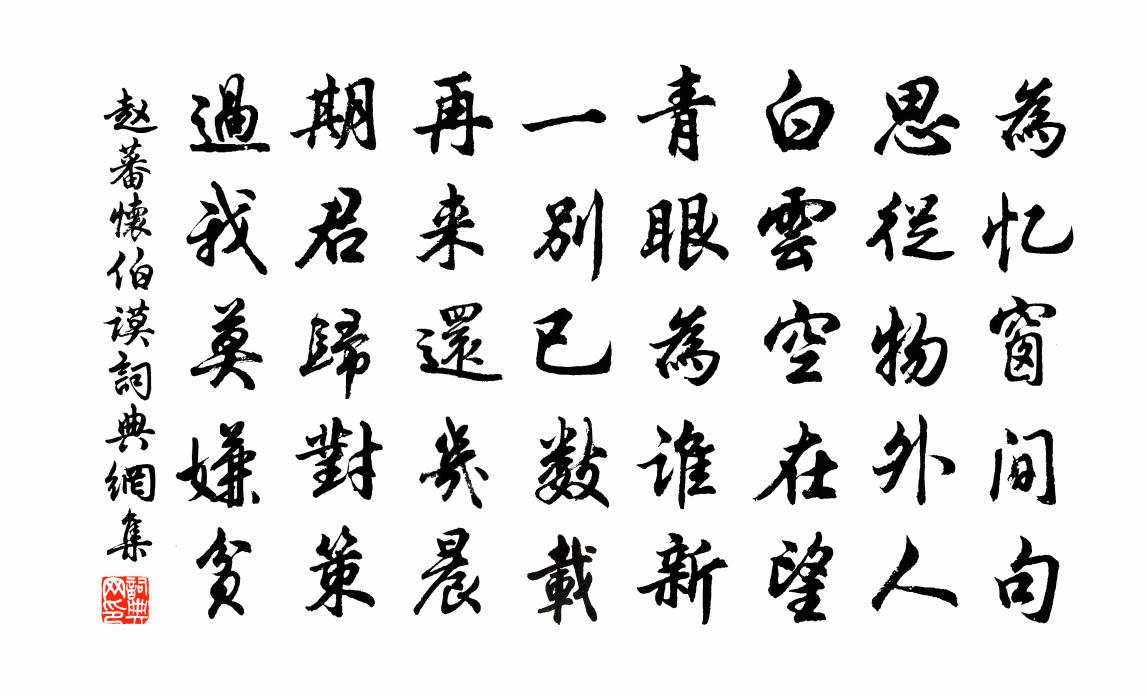 為忆窗间句
思從物外人
白雲空在望
青眼為谁新
一别已数載
再来還幾晨
期君歸對策
過我莫嫌貧
赵蕃懷伯謨詞典網集
詞典网印